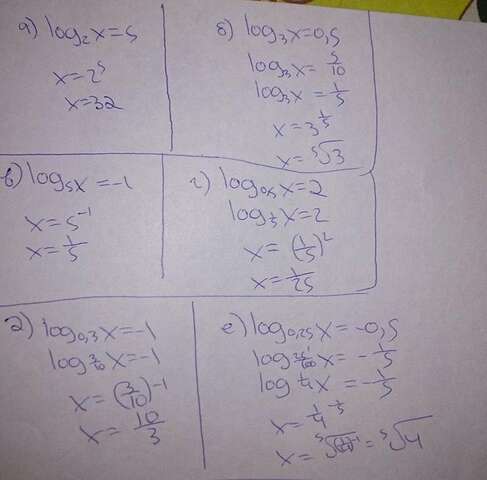 а) log₂x=5
x=2⁵
x=32
б) log₃x=0,5
log₃x=5/10
log₃x=1/5
x=3^(1/5)
x=⁵√3
в) log₅x=-1
x=5⁻¹
x=1/5
г) log₀,₅x=2
log_(1/5)x=2
x=(1/5)²
x=1/25
д) log₀,₃x=-1
log_(3/10)x=-1
x=(3/10)⁻¹
x=10/3
е) log₀,₂₅x=-0,5
x=-1/5
log_(1/4)x=-1/5